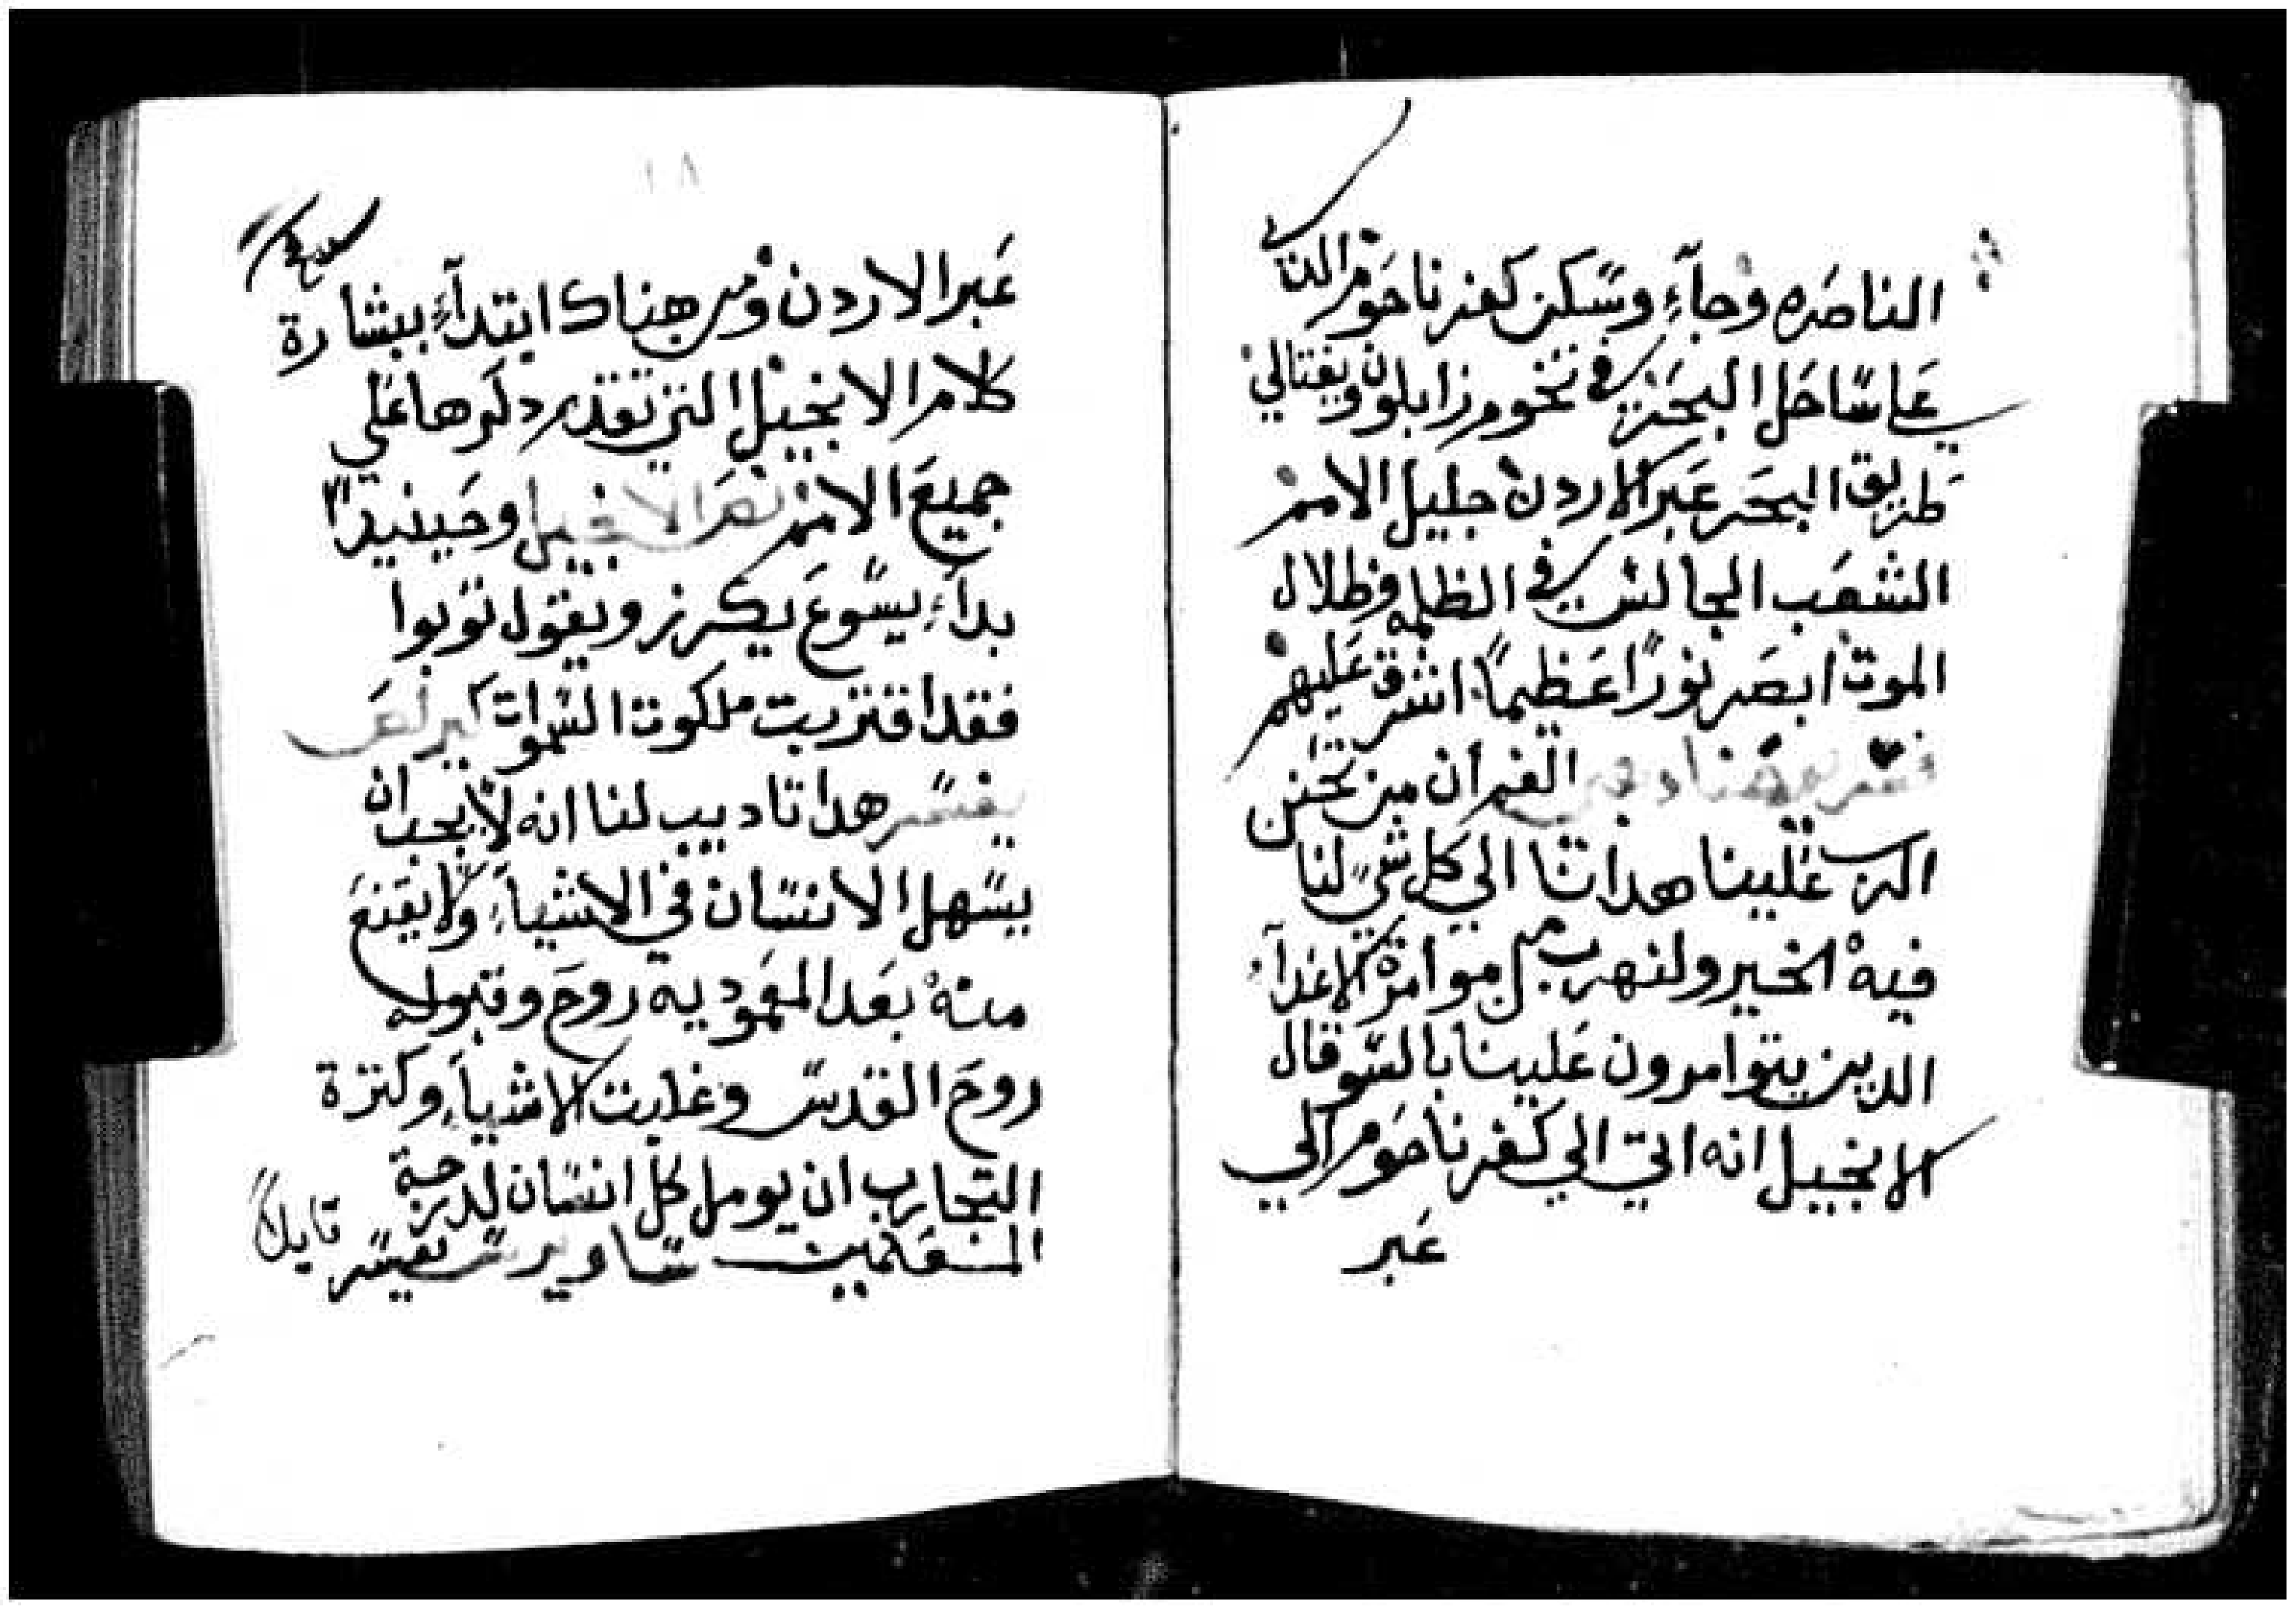 الناصره وجآء وسكن كفرناحوم التي
علي ساحل البحر في تخوم زابلون ويفتالي
طريق البحر عبر الاردن جليل الامم
الشعب الجالس في الظلمه وظلال
الموت ابصر نورًا عظيمًا اشرق عليهم
من تحنن
الرب علينا هدانا الي كل شي لنا
فيه الخير ولنهرب من موامرة الاعدآء
الدين يتوامرون علينا بالسو قال
الانجيل انه اتي الي كفرناحوم الي
عبر
١٨
عبر الاردن ومن هناك ابتدآء ببشارة
كلام الانجيل التي تقدم دكرها علي
جميع الامم نص الانجيل وحينيدًا
بدآء يسوع يكرز ويقول توبوا
فقد اقتربت ملكوت السموات
يفسر هدا تاديب لنا انه لا يجب ان
يسهل الانسان في الاشيآء ولا يقنع
منه بعد المعموديه روح وقبوله
روح القدس وغلبت الاشيآء وكترة
التجارب ان يومل كل انسان لدرجة
ساويرس يفسر قايلاً